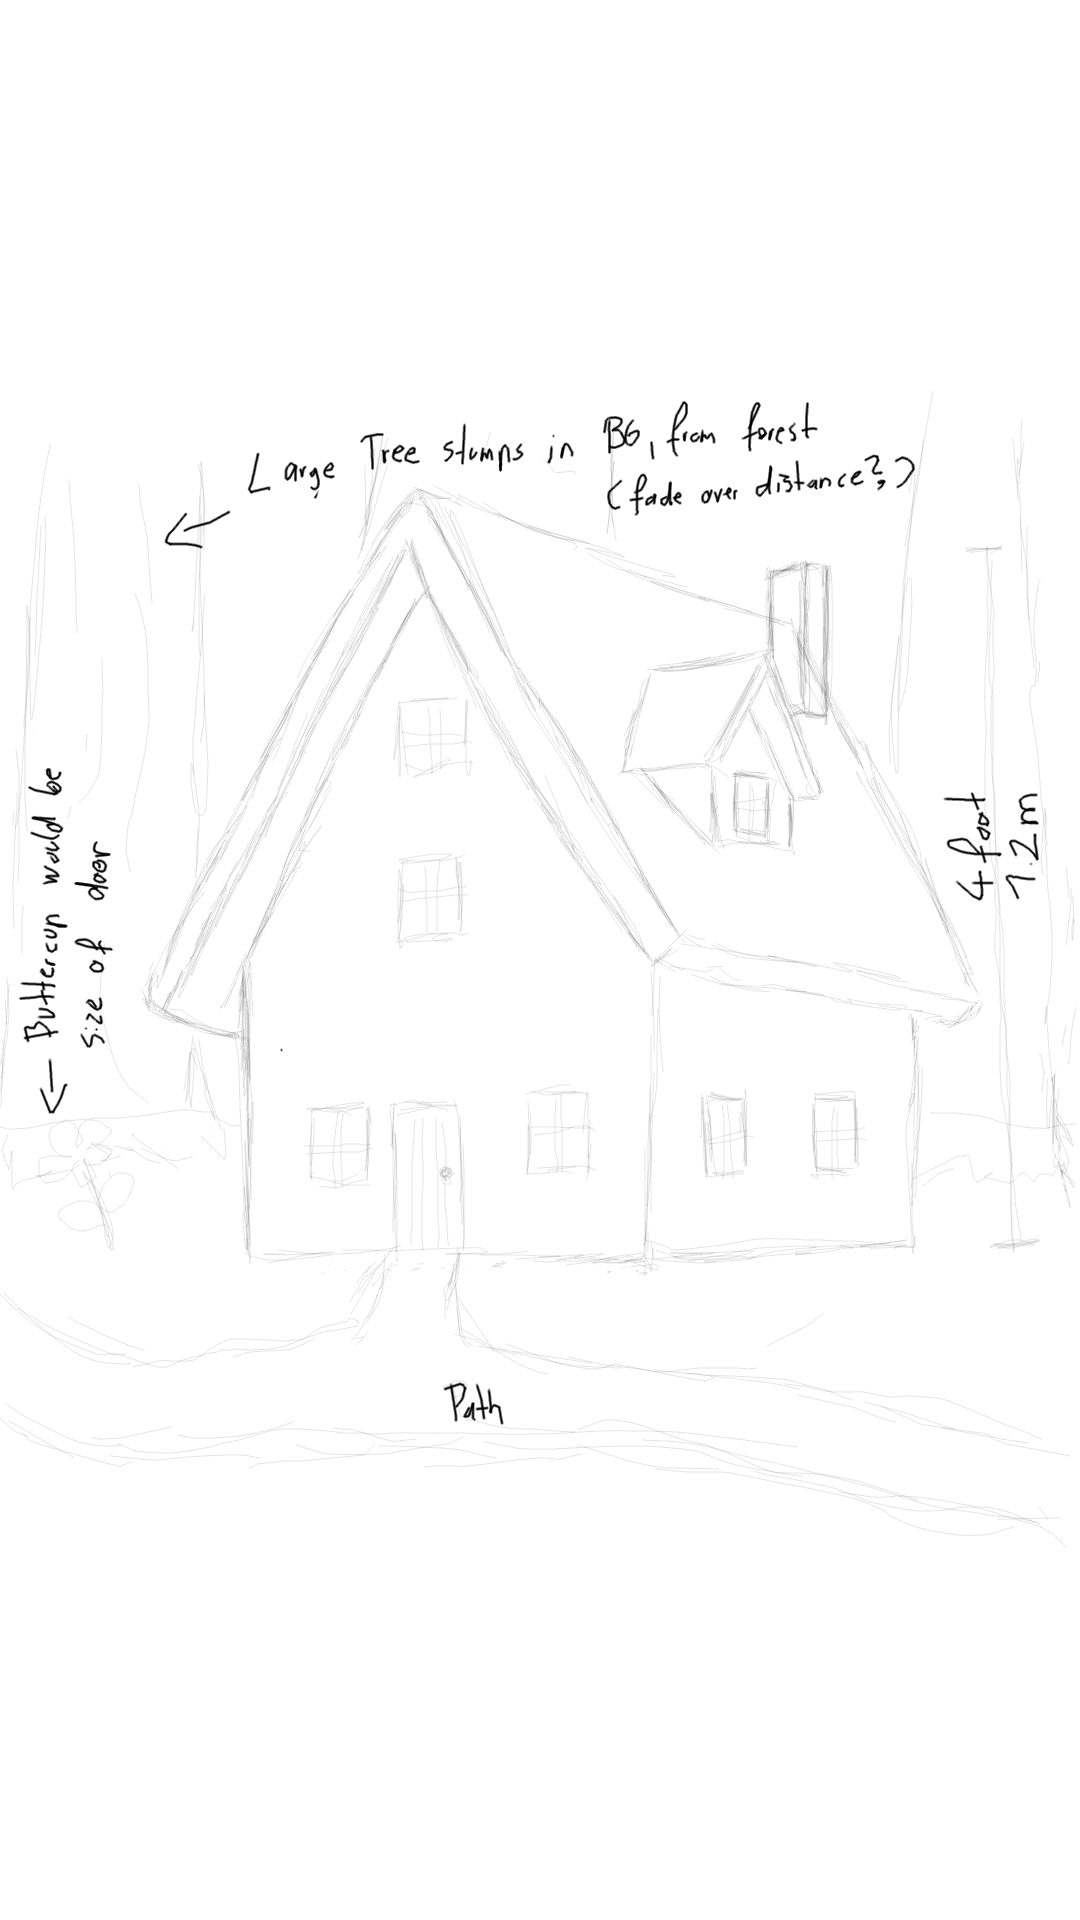 Large Tree stumps in BG, from forest
(fade over distance?,)
Buttercup would be
size of door
4 foot
1.2m
Path